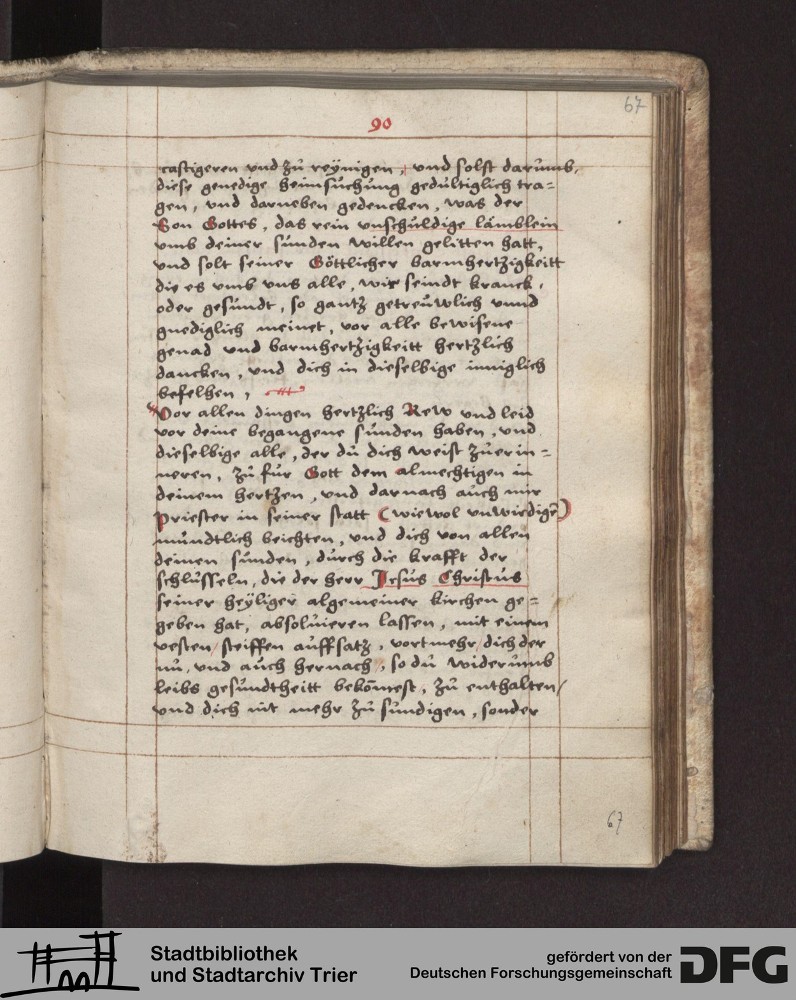 67
90
castigeren vnd zů reÿnigen, vnd solst darůmb,
diese genedige heimsůchůng gedůltiglich tra=
gen, vnd darneben gedencken, was der
Son Gottes, das rein vnschůldige lämblein
vmb deiner sůnden willen gelitten hatt,
vnd solt seiner Göttlicher barmhertzigkeitt
die es vmb vns alle, wir seindt kranck,
oder gesůndt, so gantz getreůwlich vnnd
gnediglich meinet, vor alle bewisene
genad vnd barmhertzigkeitt hertzlich
dancken, vnd dich in dieselbige inniglich
befelhen,
Vor allen dingen hertzlich Rew vnd leid
vor deine begangene sůnden haben, vnd
dieselbige alle, der dů dich weist zůerin=
neren, zů fůr Gott dem almechtigen in
deinem hertzen, vnd darnach aůch mir
Priester in seiner statt (wiewol vnwirdigē)
můndtlich beichten, vnd dich von allen
deinen sůnden, důrch die krafft der
schlůsseln, die der herr Jesůs Christůs
seiner heÿliger algemeiner kirchen ge=
geben hat, absolůieren lassen, mit einem
vesten/ steiffen aůffsatz, vortmehr/ dich der
nů, vnd aůch hernach, so dů widerůmb
leibs gesůndtheitt bekōmest, zů enthalten/
vnd dich nit mehr zů sůndigen, sonder
67
Stadtbibliothek
und Stadtarchiv Trier
gefördert von der
Deutschen Forschungsgemeinschaft
DFG